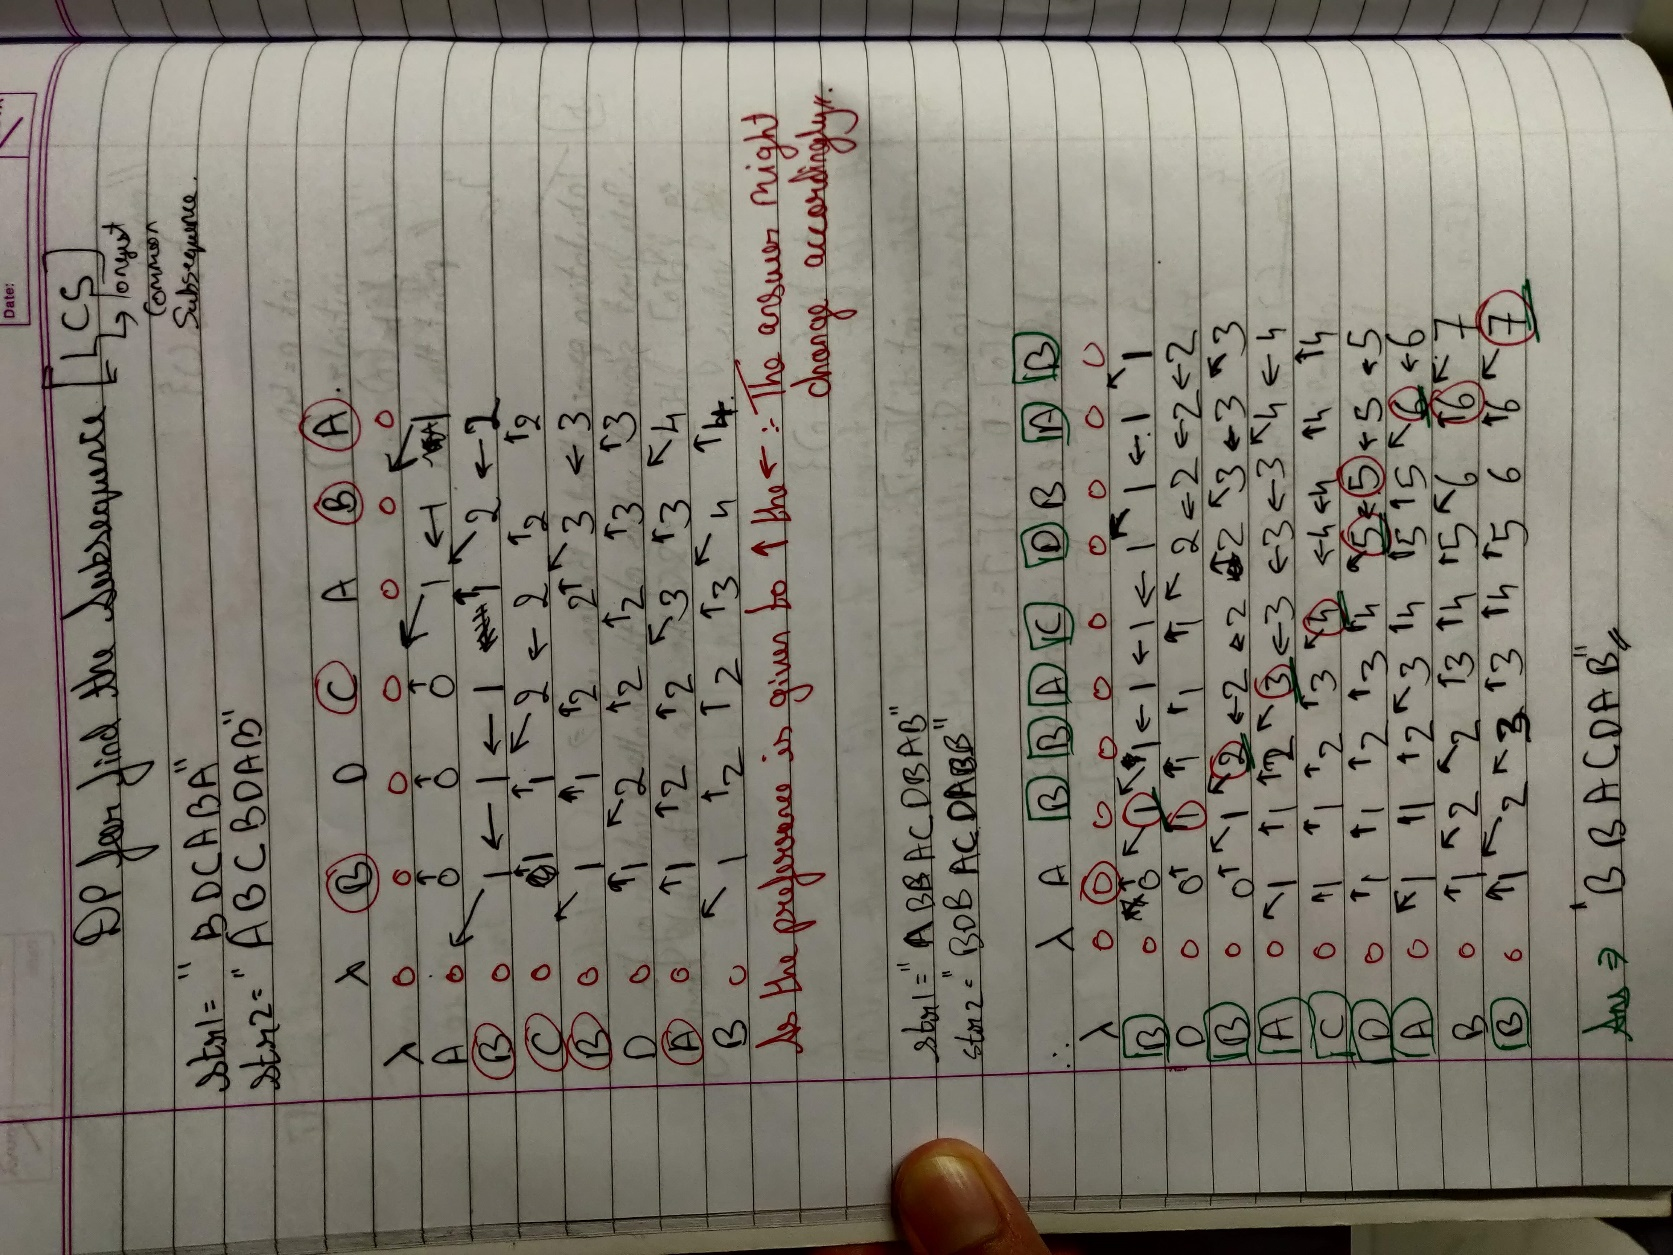 Date:
DP for find the Subsequence [LCS]
↳ longest
Common
Subsequence.
Str1 = "BDCABA"
Str2 = "ABCBDAB"
λ B D C A B A
λ 0 0 0 0 0 0 0
A 0 ↑0 ↑0 ↑0 ↖1 ←1 ↖1
B 0 ↖1 ←1 ←1 ↑1 ↖2 ←2
C 0 ↑1 ↑1 ↖2 ←2 ↑2 ↑2
B 0 ↖1 ↑1 ↑2 2↑ ↖3 ←3
D 0 ↑1 ↖2 ↑2 ↑2 ↑3 ↑3
A 0 ↑1 ↑2 ↑2 ↖3 ↑3 ↖4
B 0 ↖1 ↑2 ↑2 ↑3 ↖4 ↑4
As the preference is given to ↑ the ← :- The answer might
change accordingly.
Str1 = "ABBACDBAB"
Str2 = "BDBACDABB"
∴ A B B A C D B A B
λ 0 0 0 0 0 0 0 0 0 0
B 0 ↑0 ↖1 ↖1 ←1 ←1 ←1 ↖1 ←1 ↖1
D 0 0↑ ↑1 ↑1 ↑1 ↑1 ↖2 ←2 ←2 ←2
B 0 0↑ ↖1 ↖2 ←2 ←2 ↑2 ↖3 ←3 ↖3
A 0 ↖1 ↑1 ↑2 ↖3 ←3 ←3 ←3 ↖4 ←4
C 0 ↑1 ↑1 ↑2 ↑3 ↖4 ←4 ←4 ↑4 ↑4
D 0 ↑1 ↑1 ↑2 ↑3 ↑4 ↖5 ←5 ←5 ←5
A 0 ↖1 ↑1 ↑2 ↖3 ↑4 ↑5 ↑5 ↖6 ←6
B 0 ↑1 ↖2 ↖2 ↑3 ↑4 ↑5 ↖6 ↑6 ↖7
B 0 ↑1 ↖2 ↖3 ↑3 ↑4 ↑5 6 ↑6 ↖7
Ans ⇒ "BBACDAB"